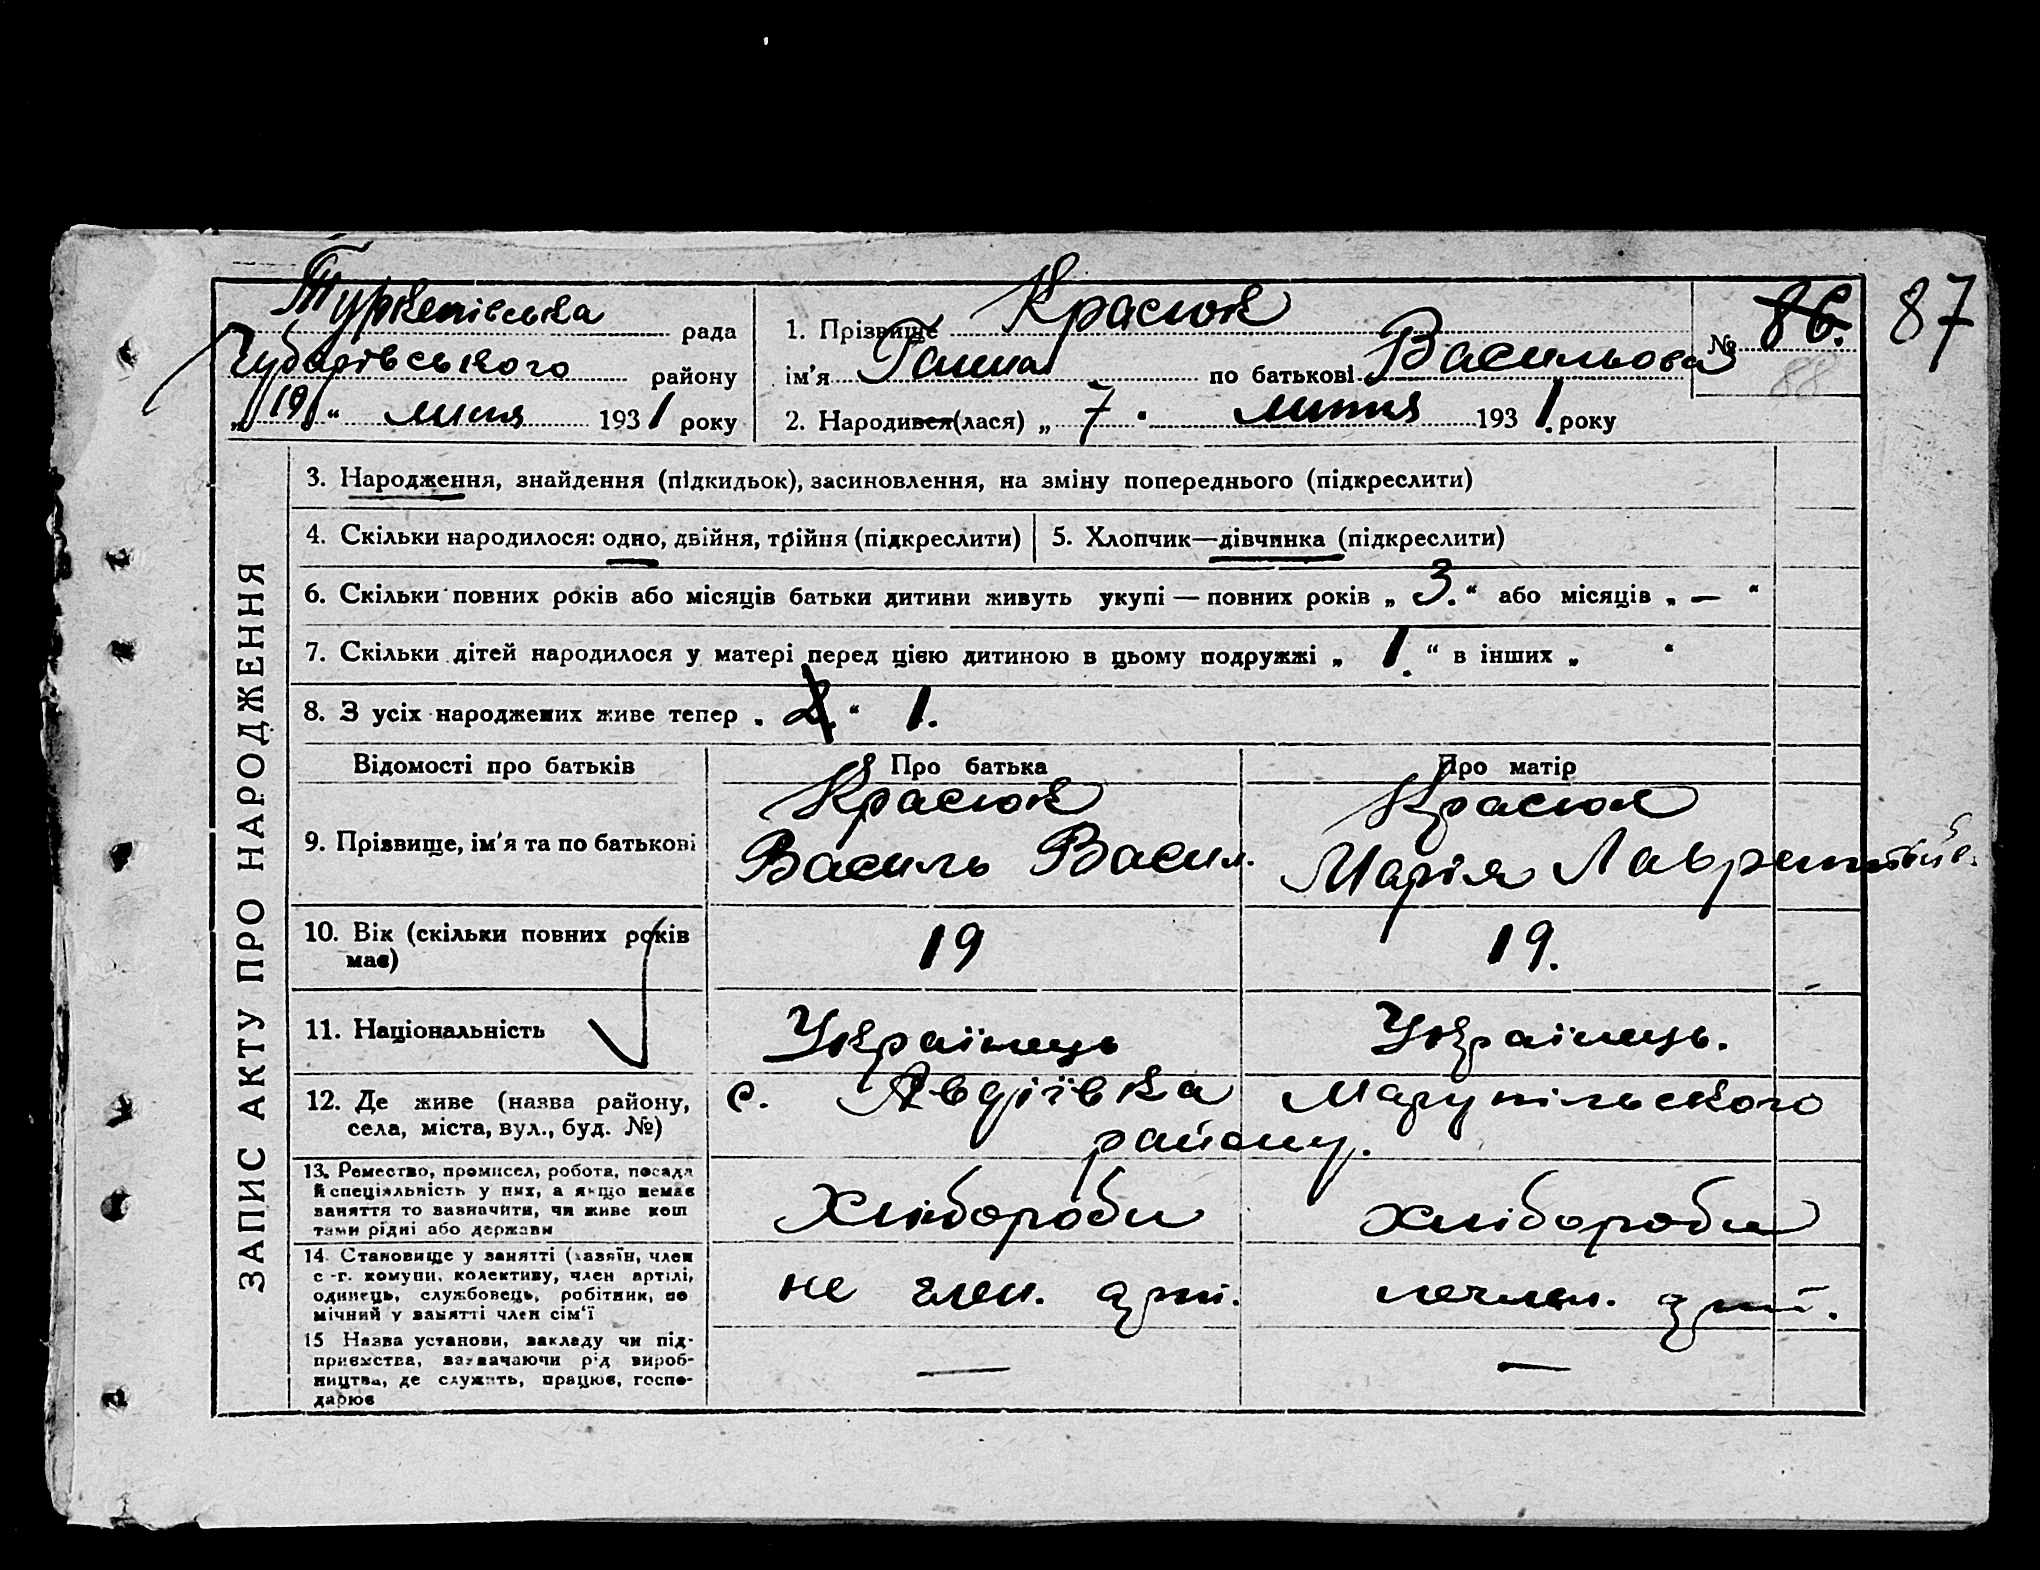 Туркенівська рада
Чубарівського району
„19“ липня 1931 року
1. Прізвище Красюк
ім'я Ганна по батькові Васильова
2. Народився(лася) „7“ липня 1931. року
№ 86. 87
88
ЗАПИС АКТУ ПРО НАРОДЖЕННЯ
3. Народження, знайдення (підкидьок), засиновлення, на зміну попереднього (підкреслити)
4. Скільки народилося: одно, двійня, трійня (підкреслити) 5. Хлопчик—дівчинка (підкреслити)
6. Скільки повних років або місяців батьки дитини живуть укупі — повних років „3.“ або місяців „—“
7. Скільки дітей народилося у матері перед цією дитиною в цьому подружжі „1.“ в інших „ “
8. З усіх народжених живе тепер „2.“ 1.
Відомості про батьків Про батька Про матір
9. Прізвище, ім'я та по батькові
Красюк
Василь Васил.
Красюк
Марія Лаврентьїв.
10. Вік (скільки повних років
має)
19 19.
11. Національність Українець Українець.
12. Де живе (назва району,
села, міста, вул., буд. №)
с. Авдіївка Марупільского
району.
13. Ремество, промисел, робота, посада
й спеціяльність у них, а якщо немає
заняття то зазначити, чи живе кош
тами рідні або держави
Хлібороби хлібороби
14. Становище у занятті (хазяїн, член
с.-г. комуни, колективу, член артілі,
одинець, службовець, робітник, по
мічний у занятті член сім'ї
не член. арт. нечлен. арт.
15 Назва установи, закладу чи під-
приємства, зазначаючи рід вироб-
ництва, де служить, працює, госпо-
дарює
— —